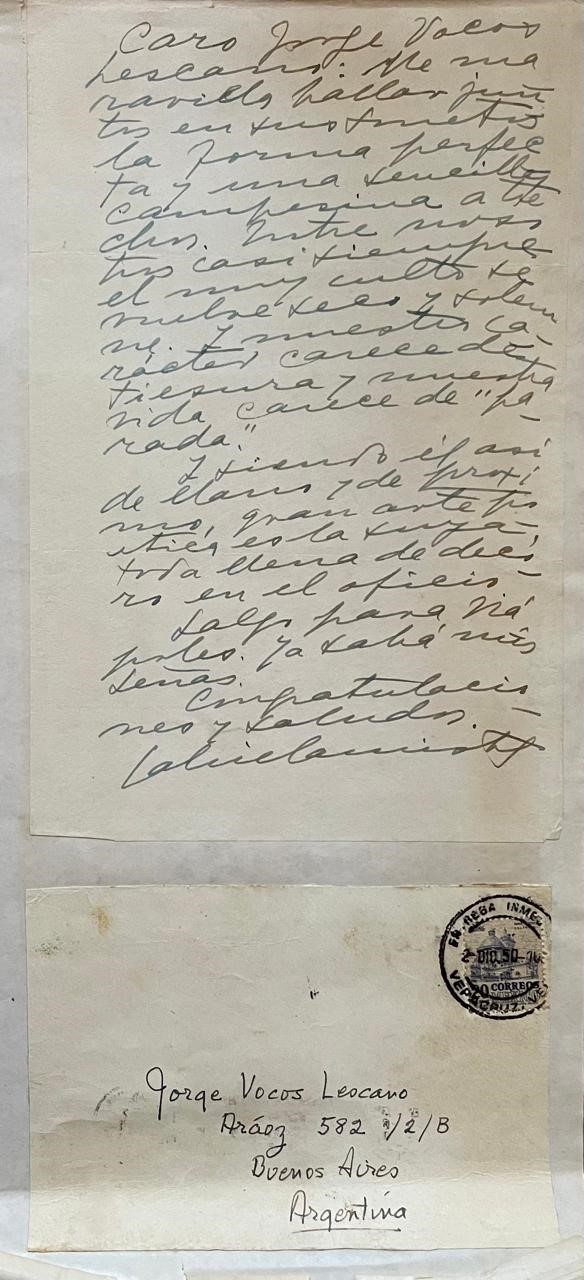 Caro Jorge Vocos
Lescano: Me ma
ravilla hallar jun
tos en sus sonetos
la forma perfec
ta y una sencillez
campesina a tre
chos. Entre noso
tros casi siempre
el muy culto se
vuelve seco y solem
ne. Y nuestro ca-
rácter carece de
tiesura y nuestra
vida carece de "pa-
rada."
Y siendo él así
de llano y de próxi
mo, gran arte po
ética es la suya,
toda llena de deco
ro en el oficio-
Salgo para Ná
poles. Ya sabrá mis
señas.
Congratulacio-
nes y saludos.
Gabriela Mistral
ENTREGA INMED
2-DIC.50
VERACRUZ, VER
20 CORREOS
Jorge Vocos Lescano
Aráoz 582 1/2/B
Buenos Aires
Argentina